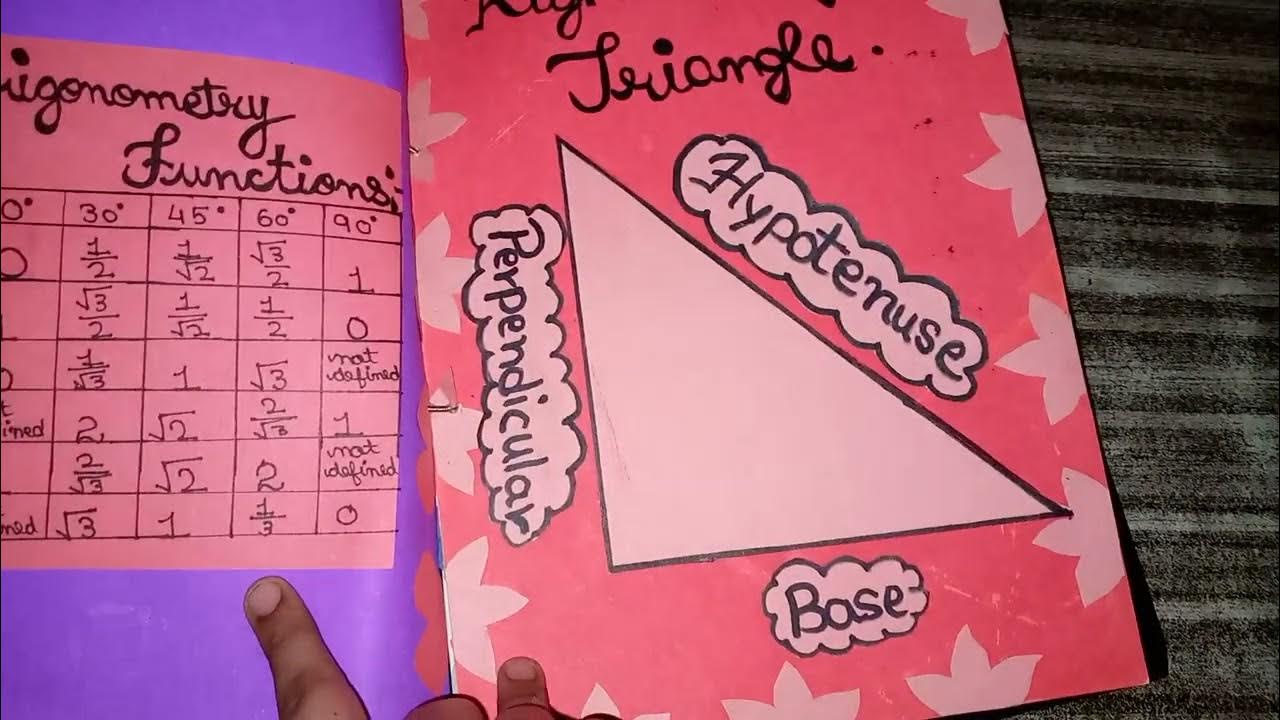 rigonometry
Functions:-
0° 30° 45° 60° 90°
0 1/2 1/√2 √3/2 1
√3/2 1/√2 1/2 0
1/√3 1 √3 not defined
ined 2 √2 2/√3 1
2/√3 √2 2 not defined
ned √3 1 1/3 0
Triangle.
Hypotenuse
Perpendicular
Base